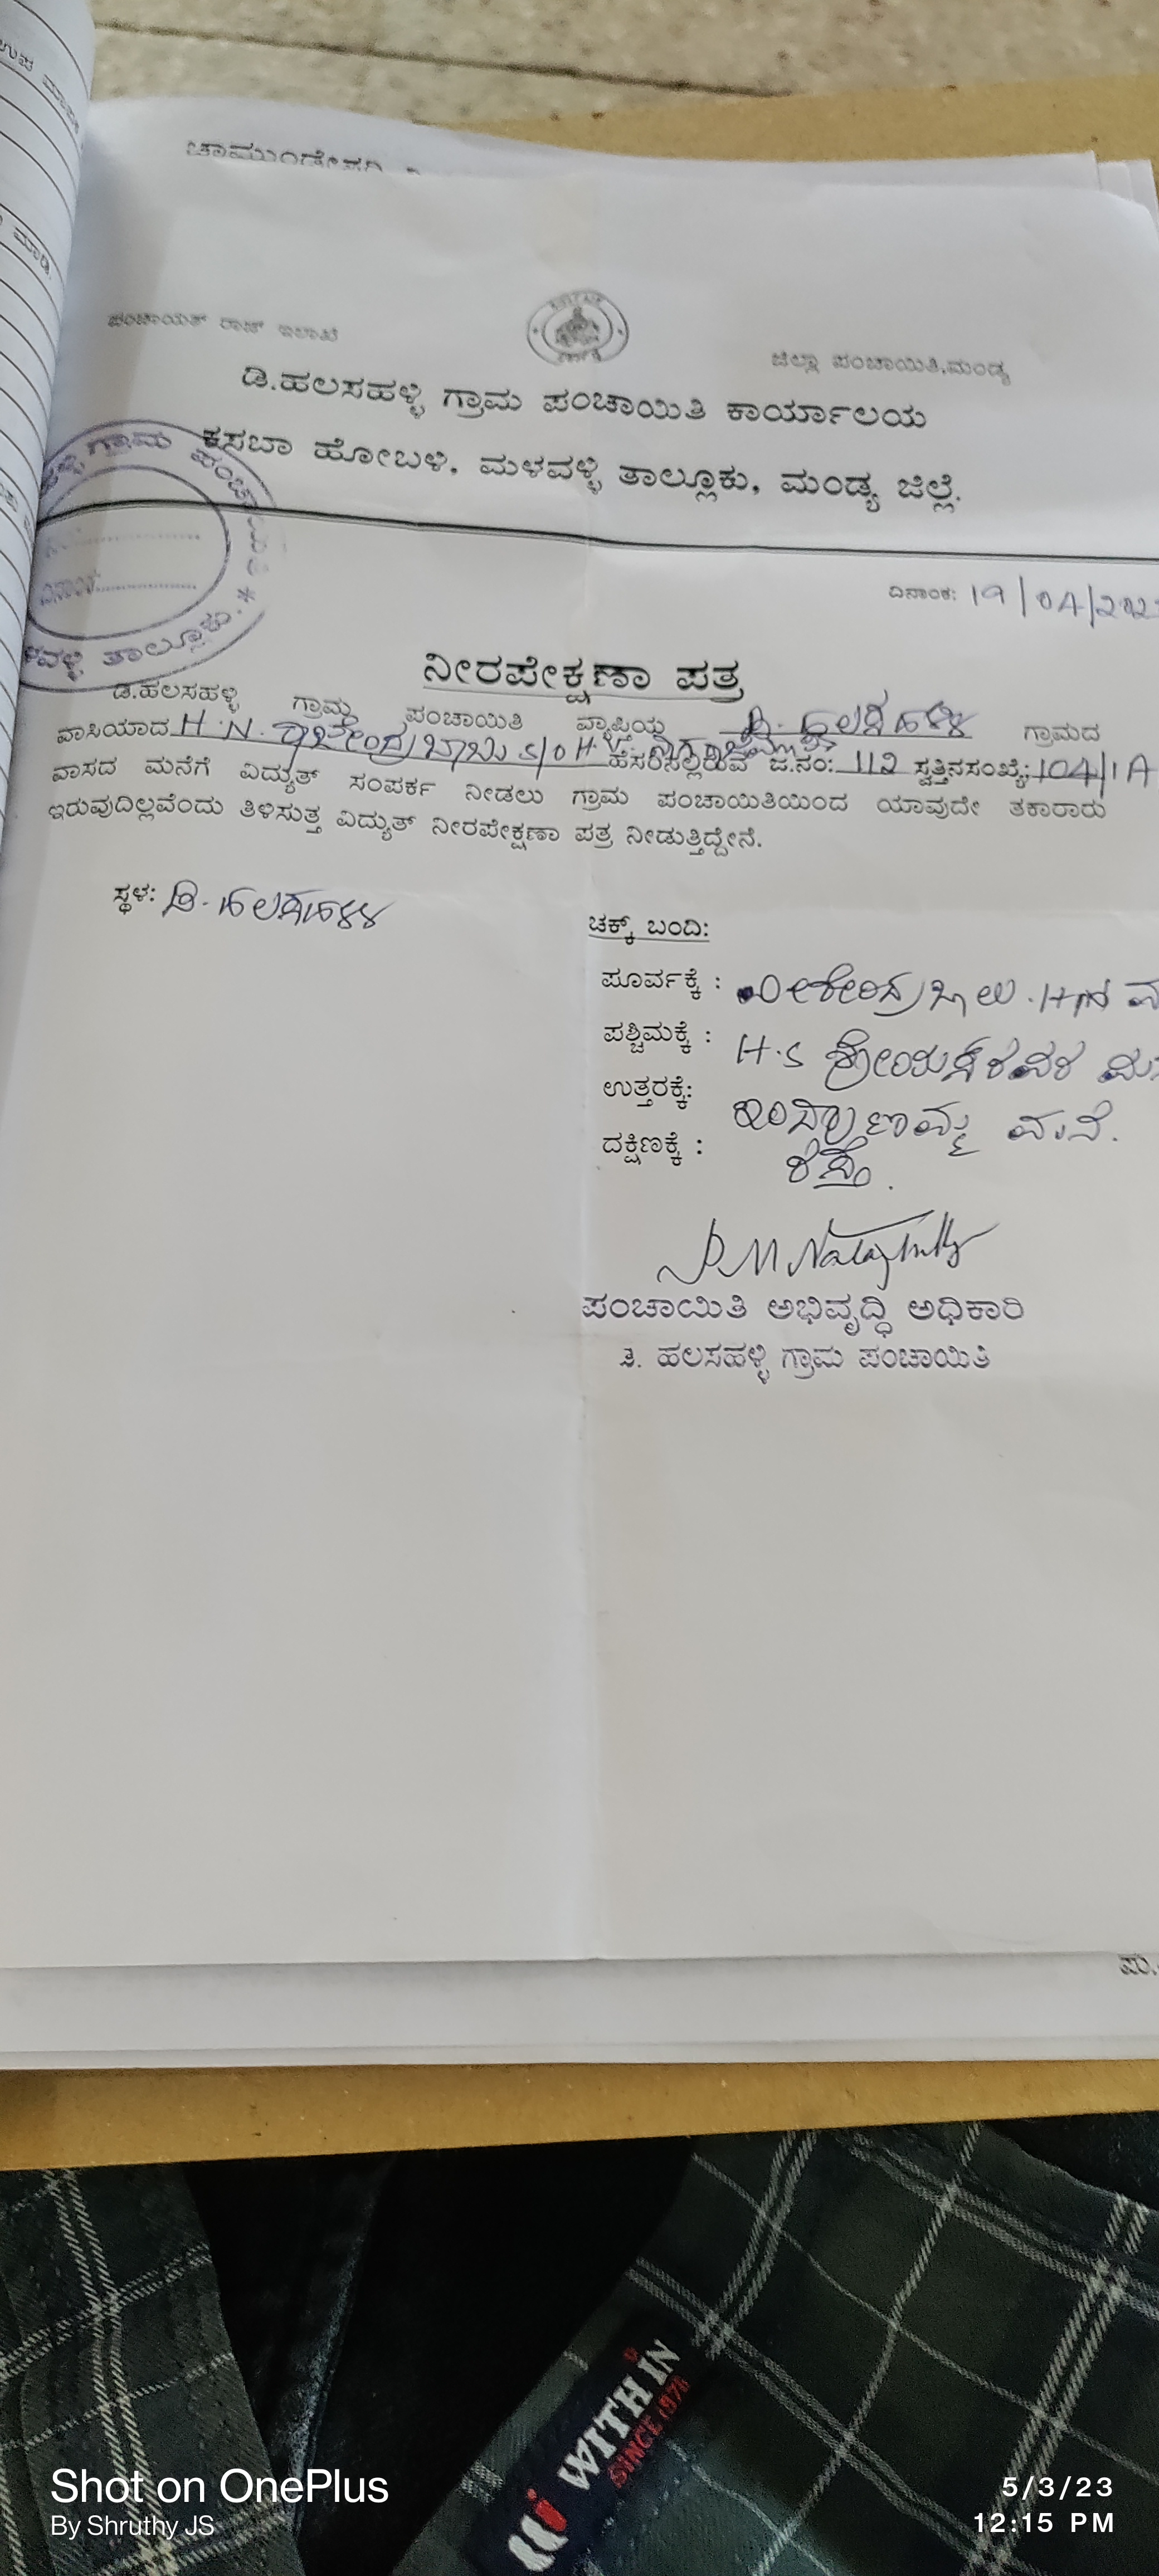 ಪಂಚಾಯತ್ ರಾಜ್ ಇಲಾಖೆ
ಜಿಲ್ಲಾ ಪಂಚಾಯಿತಿ,ಮಂಡ್ಯ
ಡಿ.ಹಲಸಹಳ್ಳಿ ಗ್ರಾಮ ಪಂಚಾಯಿತಿ ಕಾರ್ಯಾಲಯ
ಕಸಬಾ ಹೋಬಳಿ, ಮಳವಳ್ಳಿ ತಾಲ್ಲೂಕು, ಮಂಡ್ಯ ಜಿಲ್ಲೆ.
ಗ್ರಾಮ ಪಂಚಾಯಿತಿ *
ದಿನಾಂಕ:
ತಾಲ್ಲೂಕು.
ದಿನಾಂಕ: 19/04/202
ನೀರಪೇಕ್ಷಣಾ ಪತ್ರ
ಡಿ.ಹಲಸಹಳ್ಳಿ ಗ್ರಾಮ ಪಂಚಾಯಿತಿ ವ್ಯಾಪ್ತಿಯ ಡಿ. ಹಲಸಹಳ್ಳಿ ಗ್ರಾಮದ
ವಾಸಿಯಾದ H.N. ರಾಜೇಂದ್ರಬಾಬು S/O H.V. ಹೆಸರಿನಲ್ಲಿರುವ ಜ.ನಂ: 112 ಸ್ವತ್ತಿನಸಂಖ್ಯೆ: 104/1A
ವಾಸದ ಮನೆಗೆ ವಿದ್ಯುತ್ ಸಂಪರ್ಕ ನೀಡಲು ಗ್ರಾಮ ಪಂಚಾಯಿತಿಯಿಂದ ಯಾವುದೇ ತಕಾರಾರು
ಇರುವುದಿಲ್ಲವೆಂದು ತಿಳಿಸುತ್ತ ವಿದ್ಯುತ್ ನೀರಪೇಕ್ಷಣಾ ಪತ್ರ ನೀಡುತ್ತಿದ್ದೇನೆ.
ಸ್ಥಳ: ಡಿ. ಹಲಸಹಳ್ಳಿ
ಚಕ್ಕ್ ಬಂದಿ:
ಪೂರ್ವಕ್ಕೆ :
ಪಶ್ಚಿಮಕ್ಕೆ : H.S
ಉತ್ತರಕ್ಕೆ: ಇಂದ್ರಾಣಮ್ಮ ಮನೆ.
ದಕ್ಷಿಣಕ್ಕೆ : ರಸ್ತೆ.
ಪಂಚಾಯಿತಿ ಅಭಿವೃದ್ಧಿ ಅಧಿಕಾರಿ
ಡಿ. ಹಲಸಹಳ್ಳಿ ಗ್ರಾಮ ಪಂಚಾಯಿತಿ
WITH IN
SINCE 1976
Shot on OnePlus
By Shruthy JS
5/3/23
12:15 PM